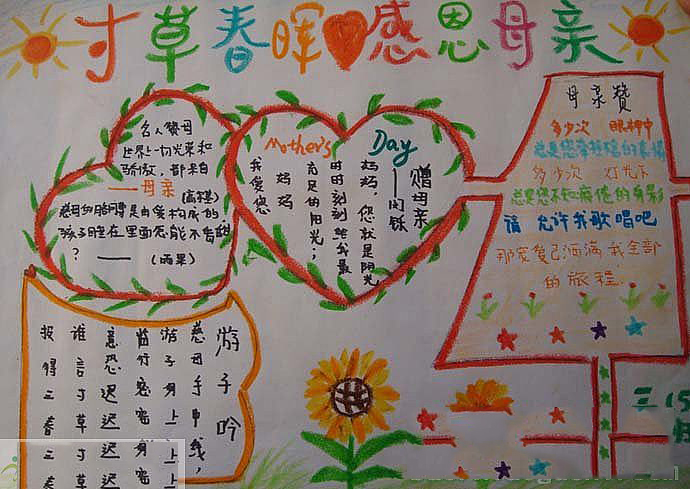 寸草春晖感恩母亲
名人赞母
世界上一切光荣和
骄傲，都来自
——母亲
(高尔基)
慈母的胳膊是由爱构成的,
孩子睡在里面怎能不香甜
？——（雨果）
Mother's Day
赠母亲
——闪铄
妈妈，您就是阳光
时时刻刻给我最
充足的阳光；
妈妈
我爱您
母亲赞
多少次
总是您
多少次 灯光下
总是您不知疲倦的身影
请 允许我歌唱吧
那爱 已洒满我全部
的旅程
游子吟
慈母手中线，
游子身上
临行密密
意恐迟迟
谁言寸草
报得三春
三15